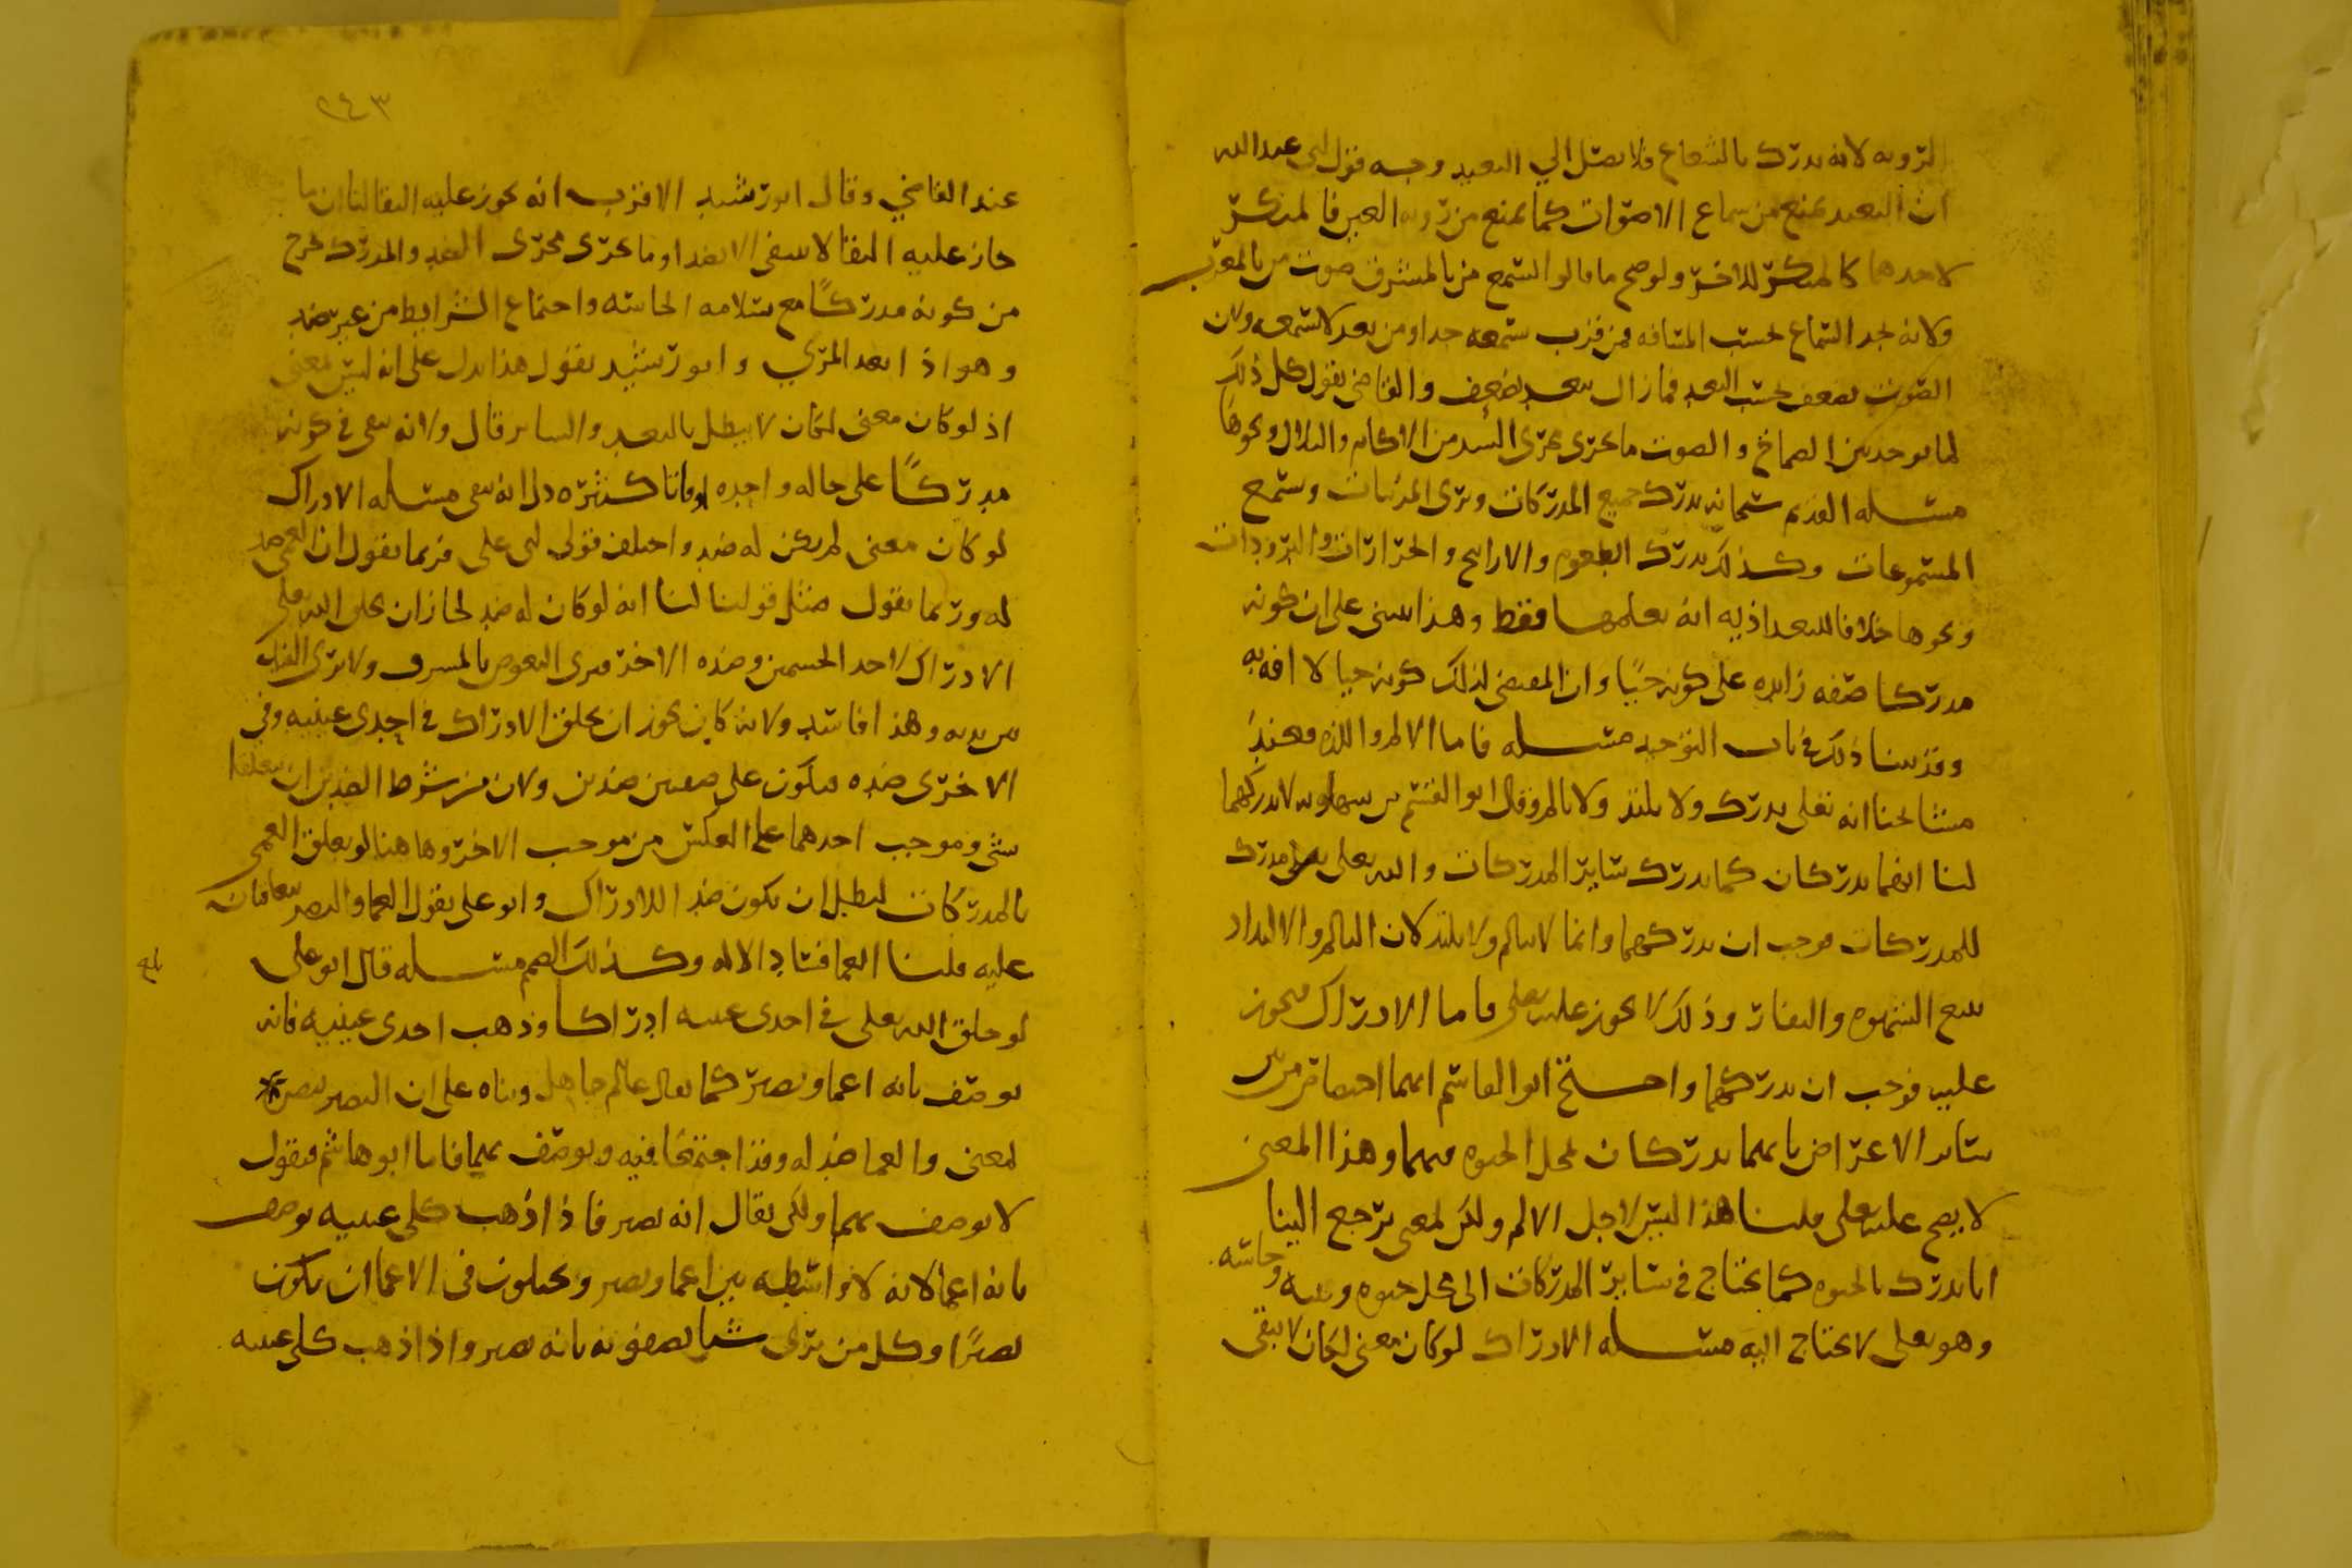 الرويه لانه يدرك بالشعاع فلا يصل الي البعيد وجه قول ابي عبد الله
ان البعيد يمنع من سماع الاصوات كما يمنع من رويه العين فالمنكر
لاحدهما كالمنكر للاخر ولو صح ما قالوا لسمع من بالمشرق صوت من بالمغرب
ولانه نجد السماع بحسب المسافه فمن قرب سمعه جدا ومن بعد لا سمعه ولان
الصوت يضعف بحسب البعد فما زال يبعد يضعف والقاضي يقول كل ذلك
لما يوجد بين الصماخ والصوت ما يجري مجرى السد من الاكام والتلال ونحوها
مسله القديم سبحانه يدرك جميع المدركات ويرى المرئيات ويسمع
المسموعات وكذلك يدرك الطعوم والاراييح والحرارات والبرودات
ونحوها خلافا للبغداذيه انه يعلمها فقط وهذا يبنى على ان كونه
مدركا صفه زايده على كونه حيا وان المقتضي لذلك كونه حيا لا افه به
وقد بينا ذلك في باب التوحيد مسله فاما الالم واللذه فعند
مشايخنا انه تعلى يدرك ولا يلتذ ولا يالم وقال ابو القسم بن سهلويه لا يدركهما
لنا انهما يدركان كما يدرك ساير المدركات والله تعلى مدرك
للمدركات فوجب ان يدركهما وانما لا يالم ولا يلتذ لان التالم والالتذاد
يتبع الشهوه والنفار وذلك لا يجوز عليه تعلى فاما الادراك فيجوز
عليه فوجب ان يدركهما واحتج ابو القاسم انهما اختصا من بين
ساير الاعراض بانهما يدركان لمحل الحيوه فيهما وهذا المعنى
لا يصح عليه تعلى قلنا هذا ليس لاجل الالم ولكن لمعنى يرجع الينا
انا ندرك بالحيوه كما نحتاج في ساير المدركات الى محل حيوه وبنيه وحاسه
وهو تعلى لا يحتاج اليه مسله الادراك لو كان معنى لكان لا يبقى
٢٤٣
عند القاضي وقال ابو رشيد الاقرب انه يجوز عليه البقا لنا ان ما
جاز عليه البقا لا ينتفي الا بضد او ما يجري مجرى الضد والمدرك يخرج
من كونه مدركا مع سلامه الحاسه واجتماع الشرايط من غير ضد
وهو اذا بعد المرئي وابو رشيد يقول هذا يدل على انه ليس بمعنى
اذ لو كان معنى لكان لا يبطل بالبعد والساتر قال ولانه يبقى في كونه
مدركا على حاله واحده اوقاتا كثيره دل انه يبقى مسله الادراك
لو كان معنى لم يكن له ضد واختلف قول ابي علي فربما يقول ان العمى ضد
له وربما يقول مثل قولنا لنا انه لو كان له ضد لجاز ان يخلق الله تعلى
الادراك لاحد الجسمين وضده الاخر فيرى البعوض بالمشرق ولا يرى الفيل
بين يديه وهذا فاسد ولانه كان يجوز ان يخلق الادراك في احدى عينيه وفي
الاخرى ضده فيكون على صفتين ضدين ولان من شرط الضدين ان يتعلقا
بشي وموجب احدهما على العكس من موجب الاخر وهاهنا لو تعلق العمى
بالمدركات لبطل ان يكون ضدا للادراك وابو علي يقول العما والبصر يتعاقبان
عليه قلنا العما فساد الاله وكذلك الصمم مسله قال ابو علي
لو خلق الله تعلى في احدى عينيه ادراكا وذهب احدى عينيه فانه
يوصف بانه اعما وبصير كما يقال عالم جاهل وبناه على ان البصير يبصر
لمعنى والعما ضد له وقد اجتمعا فيه ويوصف بهما فاما ابو هاشم فيقول
لا يوصف بهما ولكن يقال انه بصير فاذا ذهب كلى عينيه يوصف
بانه اعما لانه لا واسطه بين اعما وبصير ويحيلون في الاعما ان يكون
بصيرا وكل من يرى شيا يصفونه بانه بصير واذا ذهب كلى عينيه